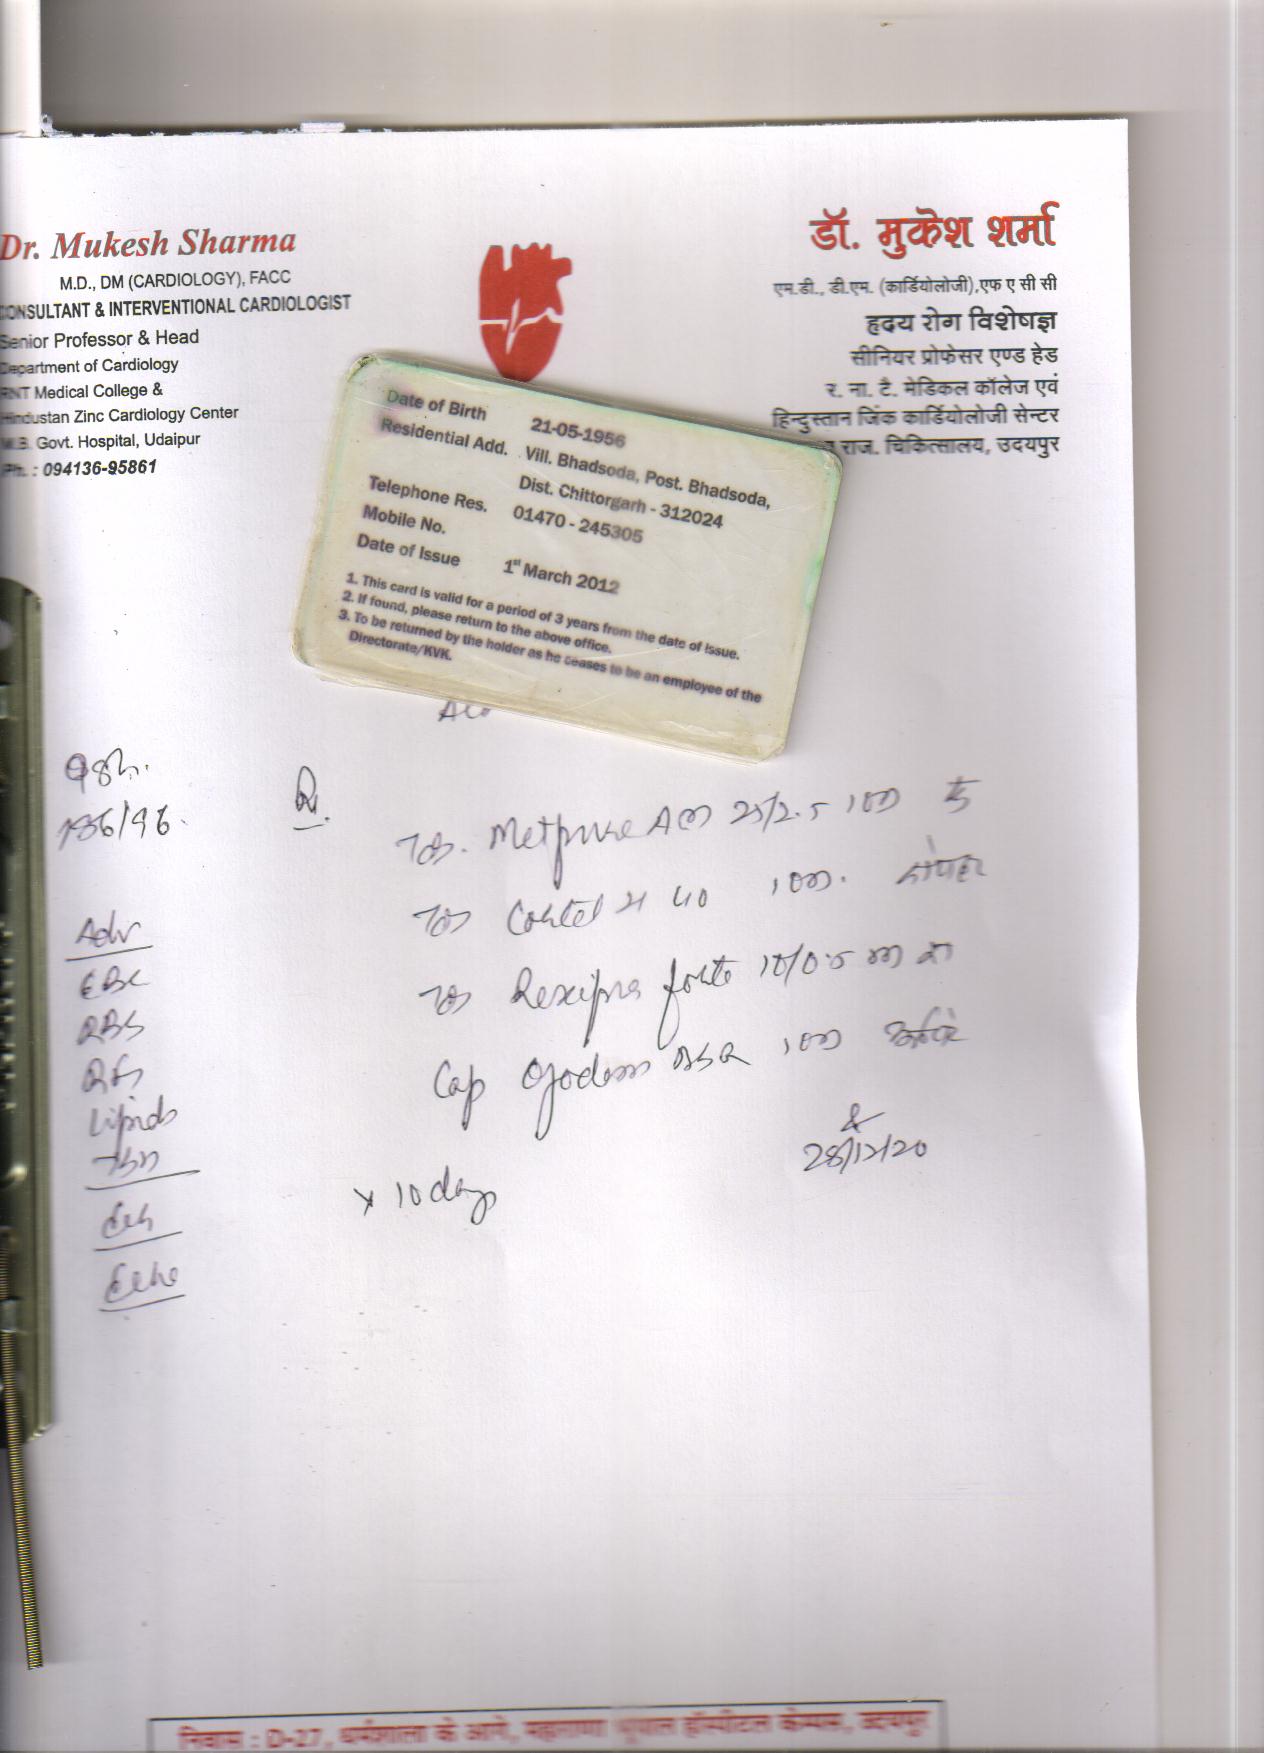 Dr. Mukesh Sharma
M.D., DM (CARDIOLOGY), FACC
CONSULTANT & INTERVENTIONAL CARDIOLOGIST
Senior Professor & Head
Department of Cardiology
RNT Medical College &
Hindustan Zinc Cardiology Center
M.B. Govt. Hospital, Udaipur
Ph. : 094136-95861
डॉ. मुकेश शर्मा
एम.डी., डी.एम. (कार्डियोलोजी),एफ ए सी सी
हृदय रोग विशेषज्ञ
सीनियर प्रोफेसर एण्ड हेड
र. ना. टै. मेडिकल कॉलेज एवं
हिन्दुस्तान जिंक कार्डियोलोजी सेन्टर
राज. चिकित्सालय, उदयपुर
Date of Birth 21-05-1956
Residential Add. Vill. Bhadsoda, Post. Bhadsoda,
Dist. Chittorgarh - 312024
Telephone Res. 01470 - 245305
Mobile No.
Date of Issue 1st March 2012
1. This card is valid for a period of 3 years from the date of Issue.
2. If found, please return to the above office.
3. To be returned by the holder as he ceases to be an employee of the
Directorate/KVK.
98/m.
186/96.
Adv
RBS
Lipids
TSH
Echo
R.
Metpure AM 25/2.5
40
forte 10/0.5
Cap DSR
x 10 days
28/12/20
निवास : D-27, धर्मशाला के आगे, महाराणा भूपाल हॉस्पीटल केम्पस, उदयपुर